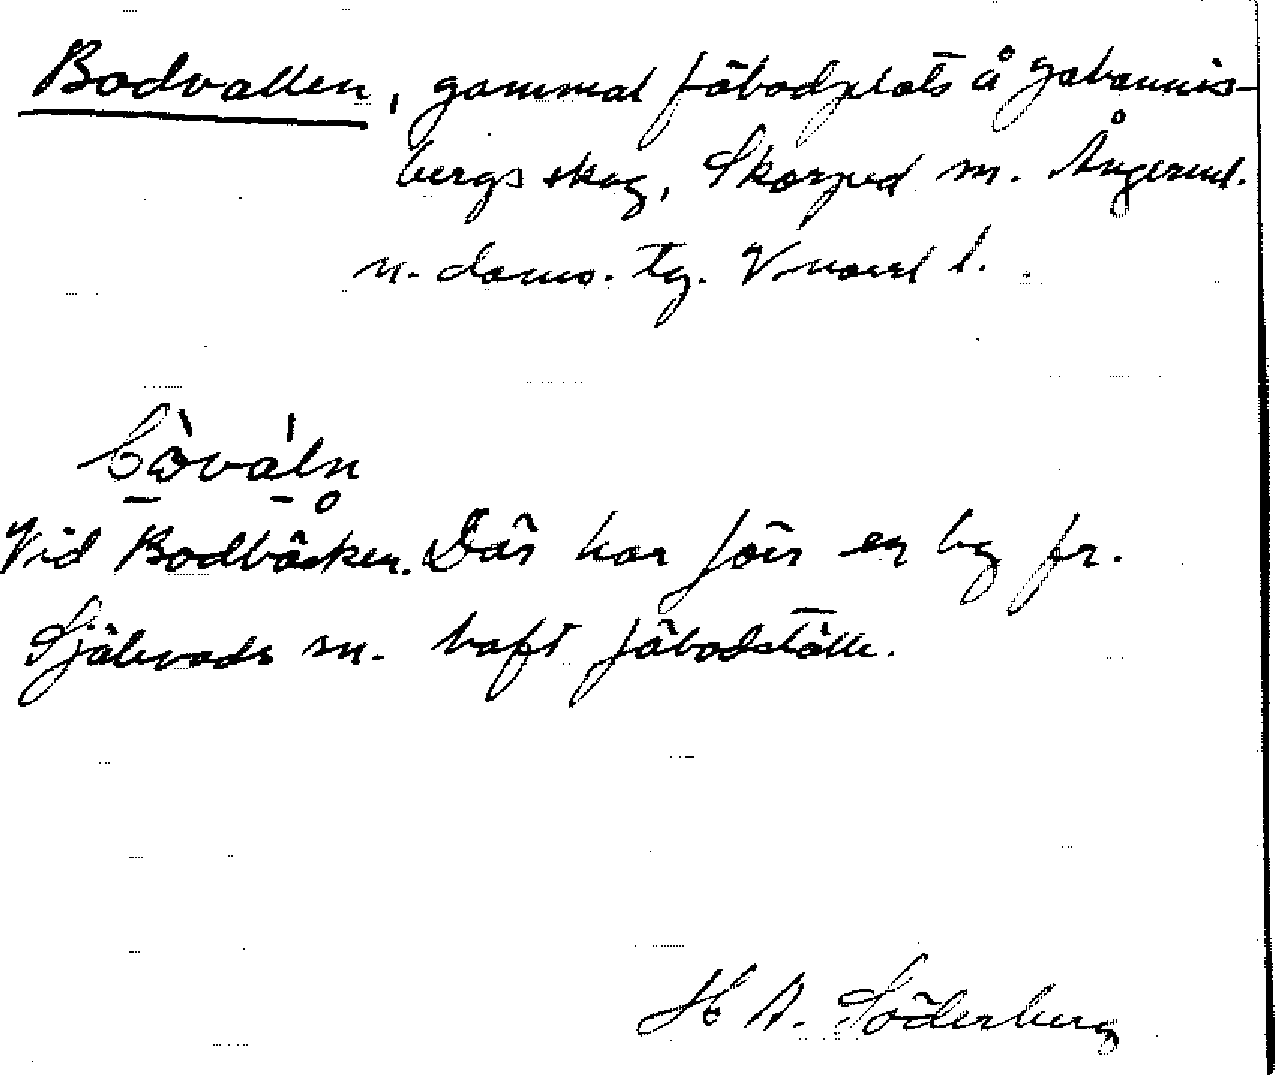 Bodvallen, gammal fäbodplats å Johannis-
bergs skog, Skorped sn. Ångerml.
n. doms. tg. V norrl l.
bòvàln
Vid Bodbäcken. Där har förr en by fr.
Själevads sn. haft fäbodställe.
H A. Söderberg